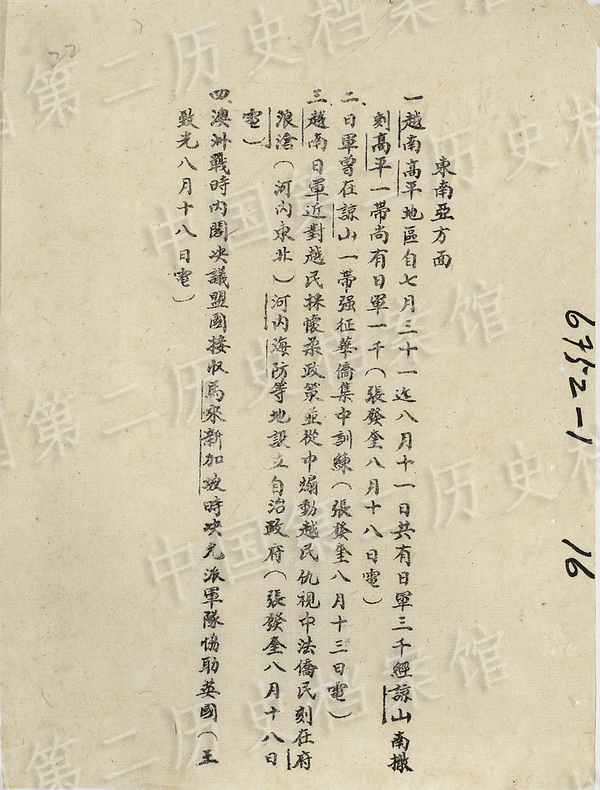 東南亞方面
一、越南高平地區自七月三十一迄八月十一日共有日軍三千經諒山南撤
刻高平一帶尚有日軍一千(張發奎八月十八日電)
二、日軍曾在諒山一帶强征華僑集中訓練(張發奎八月十三日電)
三、越南日軍近對越民採懷柔政策並從中煽動越民仇視中法僑民刻在府
浪滄(河内東北)河内海防等地設立自治政府(張發奎八月十八日
電)
四、澳洲戰時内閣决議盟國接收馬來新加坡時决允派軍隊協助英國(王
致光八月十八日電)
22
6752-1
16
中国第二历史档案馆